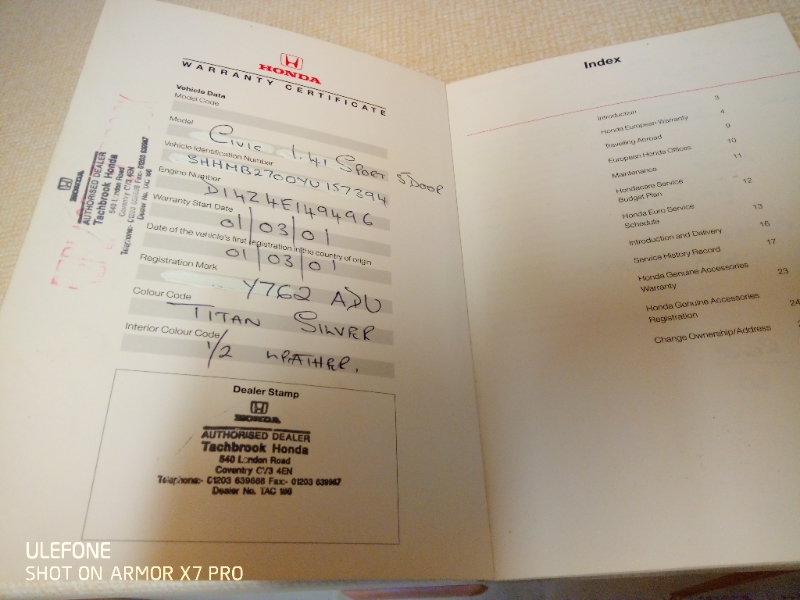 HONDA
WARRANTY CERTIFICATE
Vehicle Data
Model Code
Model
Civic 1.4i Sport 5Door
Vehicle Identification Number
SHHMB2700YU157394
Engine Number
D14Z4E149496
Warranty Start Date
01/03/01
Date of the vehicle's first registration in the country of origin
01/03/01
Registration Mark
Y762 ADU
Colour Code
TITAN SILVER
Interior Colour Code
1/2 LEATHER.
Dealer Stamp
HONDA
AUTHORISED DEALER
Tachbrook Honda
540 London Road
Coventry CV3 4EN
Dealer No. TAC
HONDA
AUTHORISED DEALER
Tachbrook Honda
540 London Road
Coventry CV3 4EN
Dealer No. TAC
Index
Introduction 3
Honda European Warranty 4
Traveling Abroad 9
European Honda Offices 10
Maintenance 11
Hondacare Service
Budget Plan 12
Honda Euro Service
Schedule 13
Introduction and Delivery 16
Service History Record 17
Honda Genuine Accessories
Warranty 23
Honda Genuine Accessories
Registration 24
Change Ownership/Address
ULEFONE
SHOT ON ARMOR X7 PRO